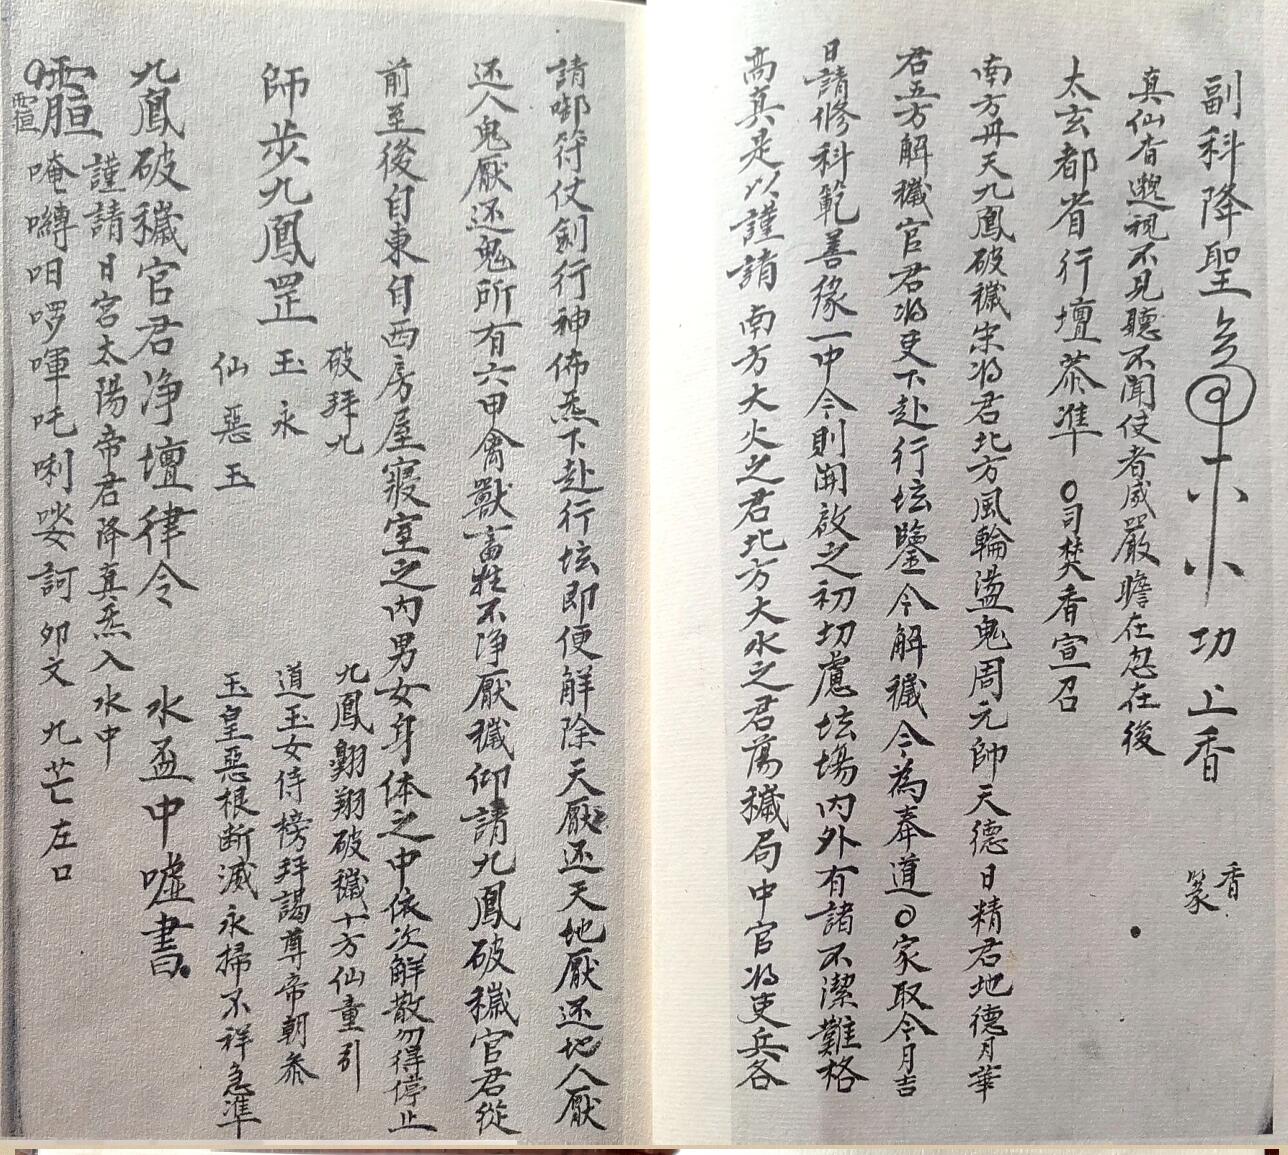 副科降聖 功上香 香篆
真仙杳邈視不見聽不聞使者威嚴瞻在忽在後
太玄都省行壇恭準 司焚香宣召
南方丹天九鳳破穢宋将君北方風輪盪鬼周元帥天德日精君地德月華
君五方解穢官君将吏下赴行坛鑒今解穢今為奉道 家取今月吉
日請修科範善缘一中今則開啟之初切慮坛塲内外有諸不潔難格
高真是以謹請 南方大火之君北方大水之君蕩穢局中官将吏兵各
請啣符仗劍行神佈炁下赴行坛即便解除天厭还天地厭还地人厭
还人鬼厭还鬼所有六甲禽獸畜牲不净厭穢仰請九鳳破穢官君從
前至後自東自西房屋寢室之内男女身体之中依次觧散勿得停止
破拜九 九鳳翺翔破穢十方仙童引
師步九鳳罡 玉永 道玉女侍榜拜謁尊帝朝叅
仙惡玉 玉皇惡根断滅永掃不祥急準
九鳳破穢官君净壇律令 水盂中噓書
謹請日宮太陽帝君降真炁入水中
唵囀呾啰嗱吒唎娑訶 卯文 九芒左口